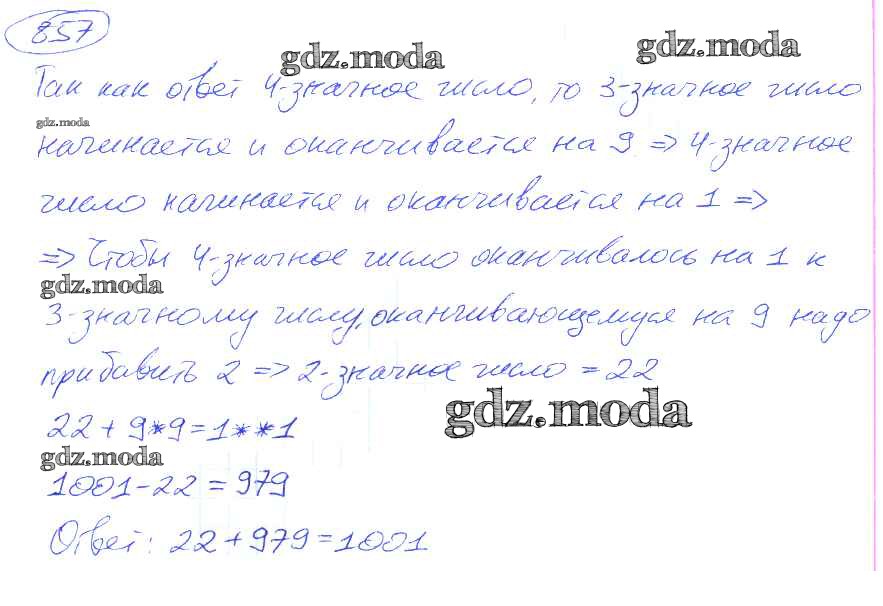 857
gdz.moda gdz.moda
Так как ответ 4-значное число, то 3-значное число
gdz.moda
начинается и оканчивается на 9 => 4-значное
число начинается и оканчивается на 1 =>
=> Чтобы 4-значное число оканчивалось на 1 к
gdz.moda
3-значному числу, оканчивающемуся на 9 надо
прибавить 2 => 2-значное число = 22
gdz.moda
22 + 9*9 = 1**1
gdz.moda
1001 - 22 = 979
Ответ: 22 + 979 = 1001